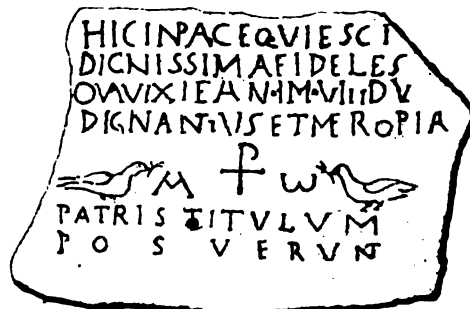 HICINPACEQVIESCI
DIGNISSIMAFIDELES
QVAVIXIEAN·IM·VIIIDV
DIGNANTIVSETMEROPIA
A ⳨ ω
PATRISTITVLVM
POSVERVNT